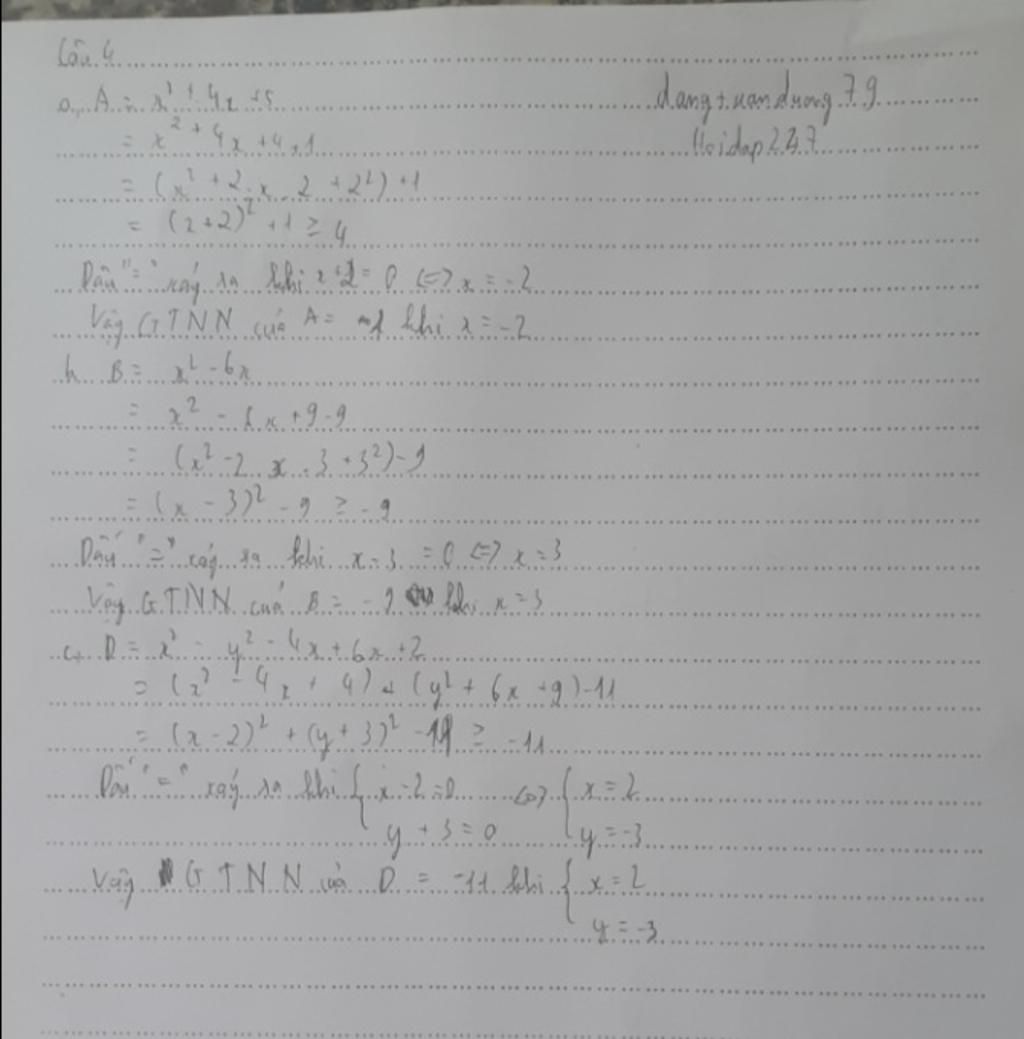 Câu 4
a, A = x² + 4x + 5
dangtuanduong79
= x² + 4x + 4 + 1
Hoidap247
= (x² + 2. x. 2 + 2²) + 1
= (x+2)² + 1 ≥ 4
Dấu "=" xảy ra khi x+2 = 0 <=> x = -2
Vậy GTNN của A = 1 khi x = -2
b, B = x² - 6x
= x² - 6x + 9 - 9
= (x² - 2. x. 3 + 3²) - 9
= (x - 3)² - 9 ≥ -9
Dấu "=" xảy ra khi x - 3 = 0 <=> x = 3
Vậy GTNN của B = -9 khi x = 3
c, D = x² - y² - 4x + 6x + 2
= (x² - 4x + 4) + (y² + 6x + 9) - 11
= (x - 2)² + (y + 3)² - 11 ≥ -11
Dấu "=" xảy ra khi { x - 2 = 0 <=> { x = 2
y + 3 = 0 y = -3
Vậy GTNN của D = -11 khi { x = 2
y = -3